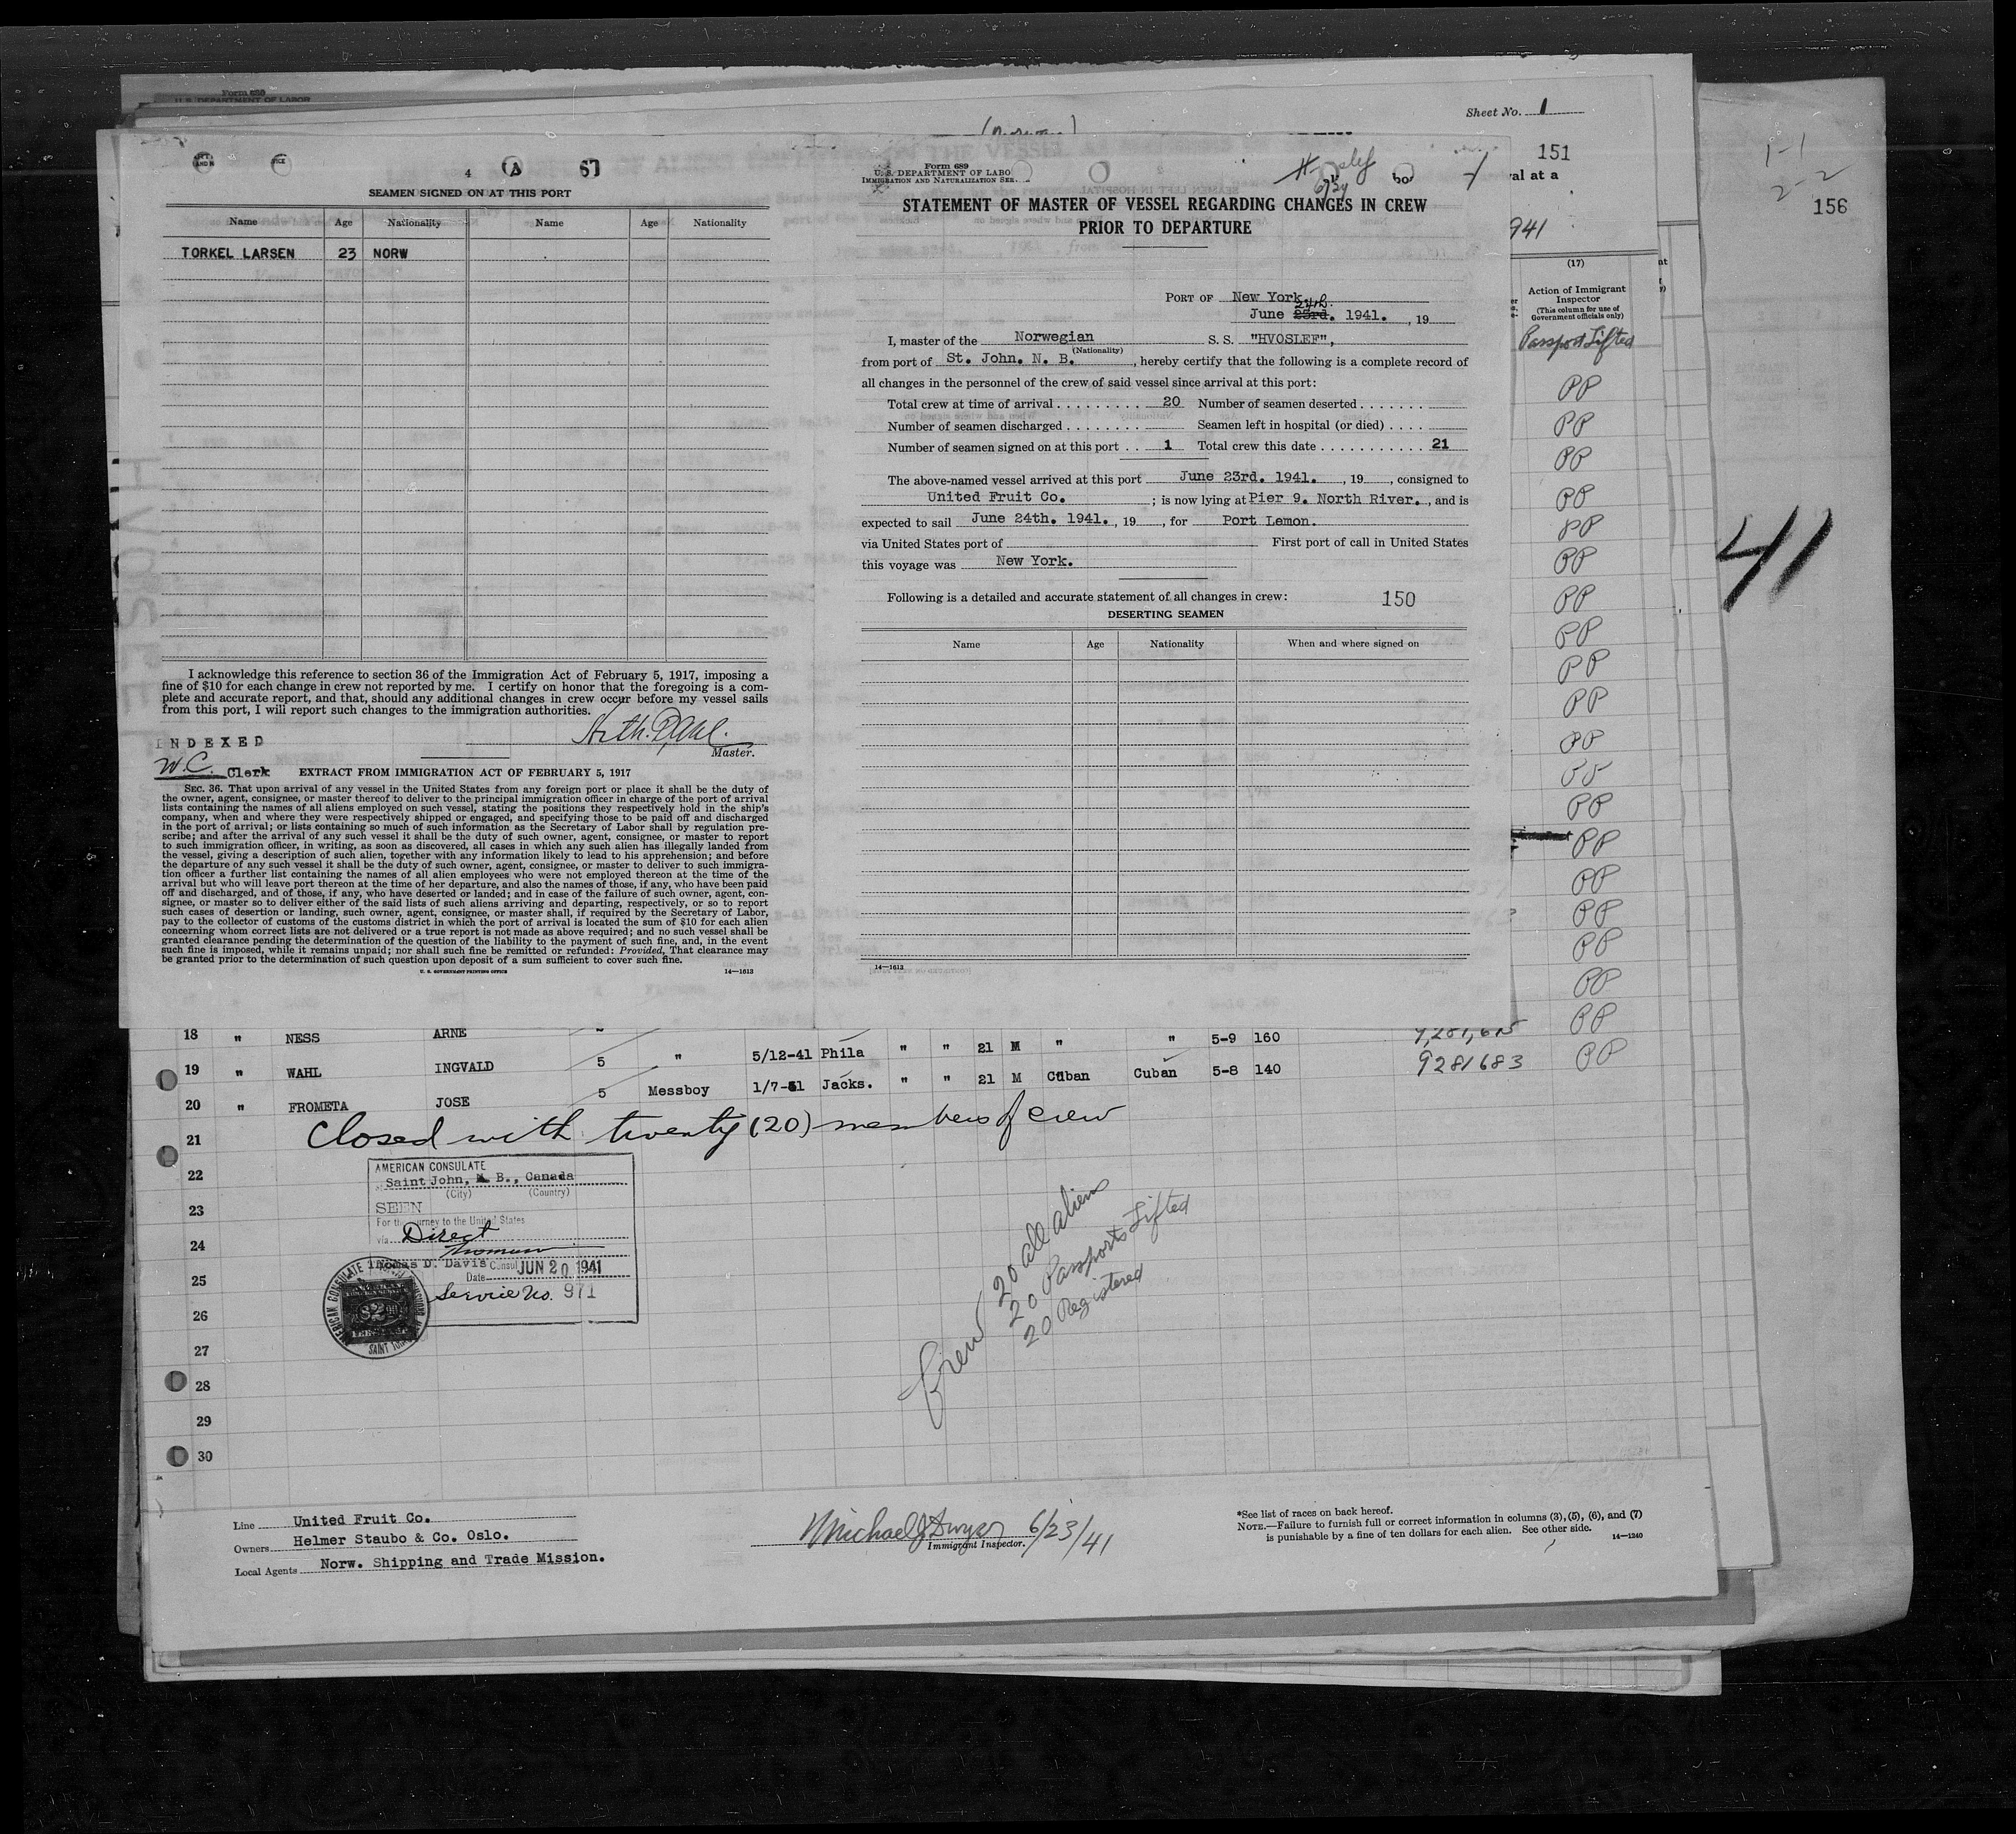 Form 689
U. S. DEPARTMENT OF LABOR
Sheet No. 1
151
156
41
4
SEAMEN SIGNED ON AT THIS PORT
Name Age Nationality Name Age Nationality
TORKEL LARSEN 23 NORW
I acknowledge this reference to section 36 of the Immigration Act of February 5, 1917, imposing a
fine of $10 for each change in crew not reported by me. I certify on honor that the foregoing is a com-
plete and accurate report, and that, should any additional changes in crew occur before my vessel sails
from this port, I will report such changes to the immigration authorities.
Master.
INDEXED
W.C. Clerk
EXTRACT FROM IMMIGRATION ACT OF FEBRUARY 5, 1917
SEC. 36. That upon arrival of any vessel in the United States from any foreign port or place it shall be the duty of
the owner, agent, consignee, or master thereof to deliver to the principal immigration officer in charge of the port of arrival
lists containing the names of all aliens employed on such vessel, stating the positions they respectively hold in the ship's
company, when and where they were respectively shipped or engaged, and specifying those to be paid off and discharged
in the port of arrival; or lists containing so much of such information as the Secretary of Labor shall by regulation pre-
scribe; and after the arrival of any such vessel it shall be the duty of such owner, agent, consignee, or master to report
to such immigration officer, in writing, as soon as discovered, all cases in which any such alien has illegally landed from
the vessel, giving a description of such alien, together with any information likely to lead to his apprehension; and before
the departure of any such vessel it shall be the duty of such owner, agent, consignee, or master to deliver to such immigra-
tion officer a further list containing the names of all alien employees who were not employed thereon at the time of the
arrival but who will leave port thereon at the time of her departure, and also the names of those, if any, who have been paid
off and discharged, and of those, if any, who have deserted or landed; and in case of the failure of such owner, agent, con-
signee, or master so to deliver either of the said lists of such aliens arriving and departing, respectively, or so to report
such cases of desertion or landing, such owner, agent, consignee, or master shall, if required by the Secretary of Labor,
pay to the collector of customs of the customs district in which the port of arrival is located the sum of $10 for each alien
concerning whom correct lists are not delivered or a true report is not made as above required; and no such vessel shall be
granted clearance pending the determination of the question of the liability to the payment of such fine, and, in the event
such fine is imposed, while it remains unpaid; nor shall such fine be remitted or refunded: Provided, That clearance may
be granted prior to the determination of such question upon deposit of a sum sufficient to cover such fine.
U. S. GOVERNMENT PRINTING OFFICE 14—1613
Form 689
U. S. DEPARTMENT OF LABO
IMMIGRATION AND NATURALIZATION SER.
STATEMENT OF MASTER OF VESSEL REGARDING CHANGES IN CREW
PRIOR TO DEPARTURE
PORT OF New York.
24th.
June 23rd. 1941. , 19
I, master of the Norwegian S. S. "HVOSLEF",
(Nationality)
from port of St. John. N. B. , hereby certify that the following is a complete record of
all changes in the personnel of the crew of said vessel since arrival at this port:
Total crew at time of arrival 20 Number of seamen deserted
Number of seamen discharged Seamen left in hospital (or died)
Number of seamen signed on at this port 1 Total crew this date 21
The above-named vessel arrived at this port June 23rd. 1941. , 19 , consigned to
United Fruit Co. ; is now lying at Pier 9. North River. , and is
expected to sail June 24th. 1941. , 19 , for Port Lemon.
via United States port of First port of call in United States
this voyage was New York.
Following is a detailed and accurate statement of all changes in crew: 150
DESERTING SEAMEN
Name Age Nationality When and where signed on
14—1613
val at a
941
(17)
Action of Immigrant
Inspector
(This column for use of
Government officials only)
Passport Lifted
PP
PP
PP
PP
PP
PP
PP
PP
PP
PP
PP
PP
PP
PP
PP
PP
PP
PP
PP
PP
18 " NESS ARNE
19 " WAHL INGVALD 5 " 5/12-41 Phila " " 21 M " " 5-9 160
20 " FROMETA JOSE 5 Messboy 1/7-41 Jacks. " " 21 M Cuban Cuban 5-8 140 9281683
21 Closed with twenty (20) members of crew
22
23
24
25
26
27
28
29
30
AMERICAN CONSULATE
Saint John, N. B., Canada
(City) (Country)
SEEN
For the journey to the United States
via Direct
Thomas D. Davis Consul
Date JUN 20 1941
Service No. 971
Crew 20 all aliens
20 Passports Lifted
20 Registered
Line United Fruit Co.
Owners Helmer Staubo & Co. Oslo.
Local Agents Norw. Shipping and Trade Mission.
Michael J Dwyer 6/23/41
Immigrant Inspector.
*See list of races on back hereof.
NOTE.—Failure to furnish full or correct information in columns (3), (5), (6), and (7)
is punishable by a fine of ten dollars for each alien. See other side. 14—1240